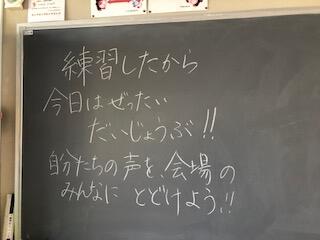 練習したから
今日はぜったい
だいじょうぶ!!
自分たちの声を、会場の
みんなに とどけよう!!